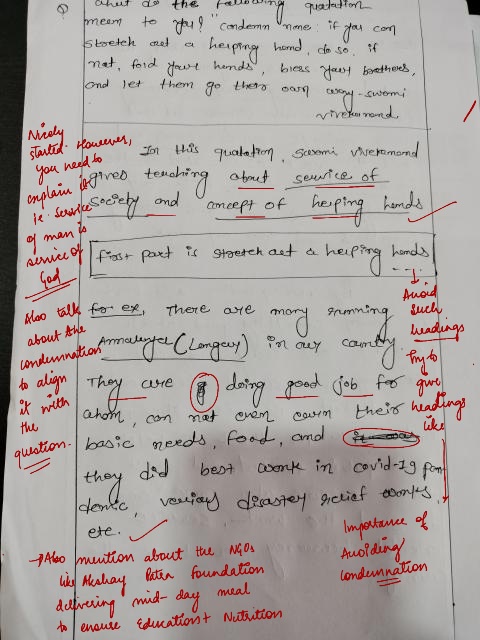 Q
What do the following quotation
meem to you? "condemn none: if you can
stretch out a helping hand, do so. if
not, fold your hands, bless your brothers,
and let them go their own way - swami
vivekanand
In this quotation, swami vivekanand
gives teaching about service of
society and concept of helping hands
first part is stretch out a helping hands
for ex, There are many running
(Langar) in our country
They are doing good job for
whom, can not even earn their
basic needs, food, and
they did best work in covid-19 pan
demic, various disaster relief works,
etc.
Nicely
started. However,
you need to
explain it
ie. service
of man is
service of
God
Also talk
about the
condemnation
to align
it with
the
question.
Avoid
such
headings
Try to
give
headings
like
Importance of
Avoiding
condemnation
→ Also mention about the NGOs
like Akshay Patra Foundation
delivering mid-day meal
to ensure Education + Nutrition